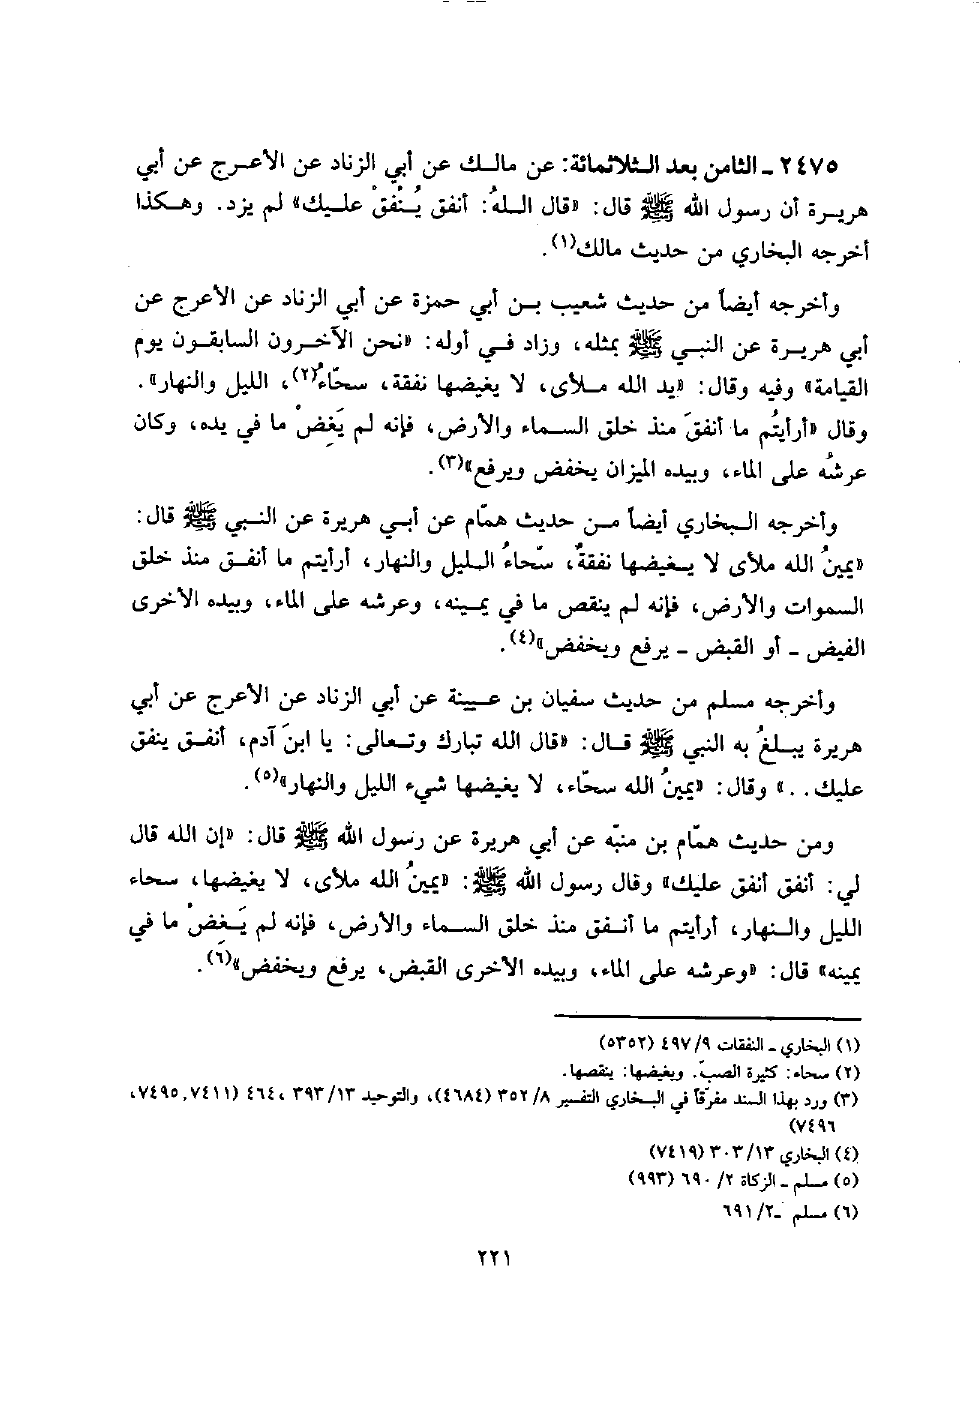 ٢٤٧٥ ـ الثامن بعد الثلاثمائة: عن مالك عن أبي الزناد عن الأعرج عن أبي
هريرة أن رسول الله ﷺ قال: «قال اللهُ: أنفق يُنْفَقْ عليك» لم يزد. وهكذا
أخرجه البخاري من حديث مالك(١).
وأخرجه أيضاً من حديث شعيب بن أبي حمزة عن أبي الزناد عن الأعرج عن
أبي هريرة عن النبي ﷺ بمثله، وزاد في أوله: «نحن الآخرون السابقون يوم
القيامة» وفيه وقال: «يد الله ملأى، لا يغيضها نفقة، سحّاءُ(٢)، الليل والنهار».
وقال «أرأيتُم ما أنفقَ منذ خلق السماء والأرض، فإنه لم يَغِضْ ما في يده، وكان
عرشُه على الماء، وبيده الميزان يخفض ويرفع»(٣).
وأخرجه البخاري أيضاً من حديث همّام عن أبي هريرة عن النبي ﷺ قال:
«يمينُ الله ملأى لا يغيضها نفقةٌ، سحّاءُ الليل والنهار، أرأيتم ما أنفق منذ خلق
السموات والأرض، فإنه لم ينقص ما في يمينه، وعرشه على الماء، وبيده الأخرى
الفيض ـ أو القبض ـ يرفع ويخفض»(٤).
وأخرجه مسلم من حديث سفيان بن عيينة عن أبي الزناد عن الأعرج عن أبي
هريرة يبلغُ به النبي ﷺ قال: «قال الله تبارك وتعالى: يا ابنَ آدم، أنفق ينفق
عليك..» وقال: «يمينُ الله سحّاء، لا يغيضها شيء الليل والنهار»(٥).
ومن حديث همّام بن منبّه عن أبي هريرة عن رسول الله ﷺ قال: «إن الله قال
لي: أنفق أنفق عليك» وقال رسول الله ﷺ: «يمينُ الله ملأى، لا يغيضها، سحاء
الليل والنهار، أرأيتم ما أنفق منذ خلق السماء والأرض، فإنه لم يَغِضْ ما في
يمينه» قال: «وعرشه على الماء، وبيده الأخرى القبض، يرفع ويخفض»(٦).
(١) البخاري ـ النفقات ٩/ ٤٩٧ (٥٣٥٢)
(٢) سحاء: كثيرة الصبّ. ويغيضها: ينقصها.
(٣) ورد بهذا السند مفرّقاً في البخاري التفسير ٨/ ٣٥٢ (٤٦٨٤)، والتوحيد ١٣/ ٣٩٣، ٤٦٤ (٧٤١١، ٧٤٩٥،
٧٤٩٦)
(٤) البخاري ١٣/ ٣٠٣ (٧٤١٩)
(٥) مسلم ـ الزكاة ٢/ ٦٩٠ (٩٩٣)
(٦) مسلم ـ٢/ ٦٩١
٢٢١